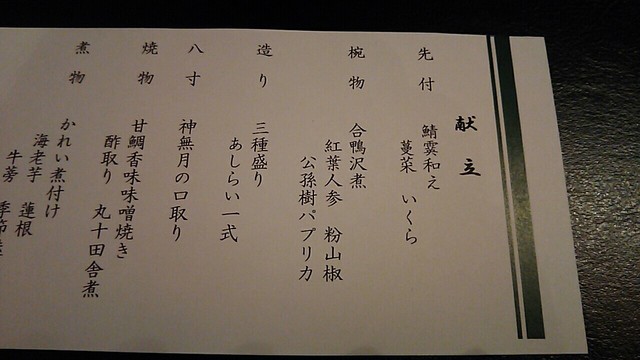 献立
先付
鯖霙和え
蔓菜 いくら
椀物
合鴨沢煮
紅葉人参 粉山椒
公孫樹パプリカ
造り
三種盛り
あしらい一式
八寸
神無月の口取り
焼物
甘鯛香味味噌焼き
酢取り 丸十田舎煮
煮物
かれい煮付け
海老芋 蓮根
牛蒡 季節